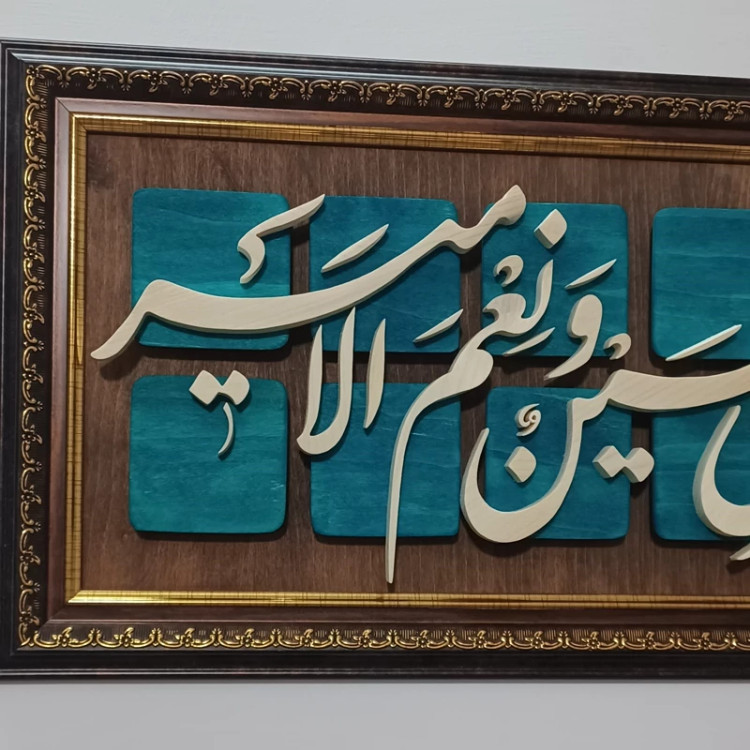 حسین وَ نِعْمَ الامیر